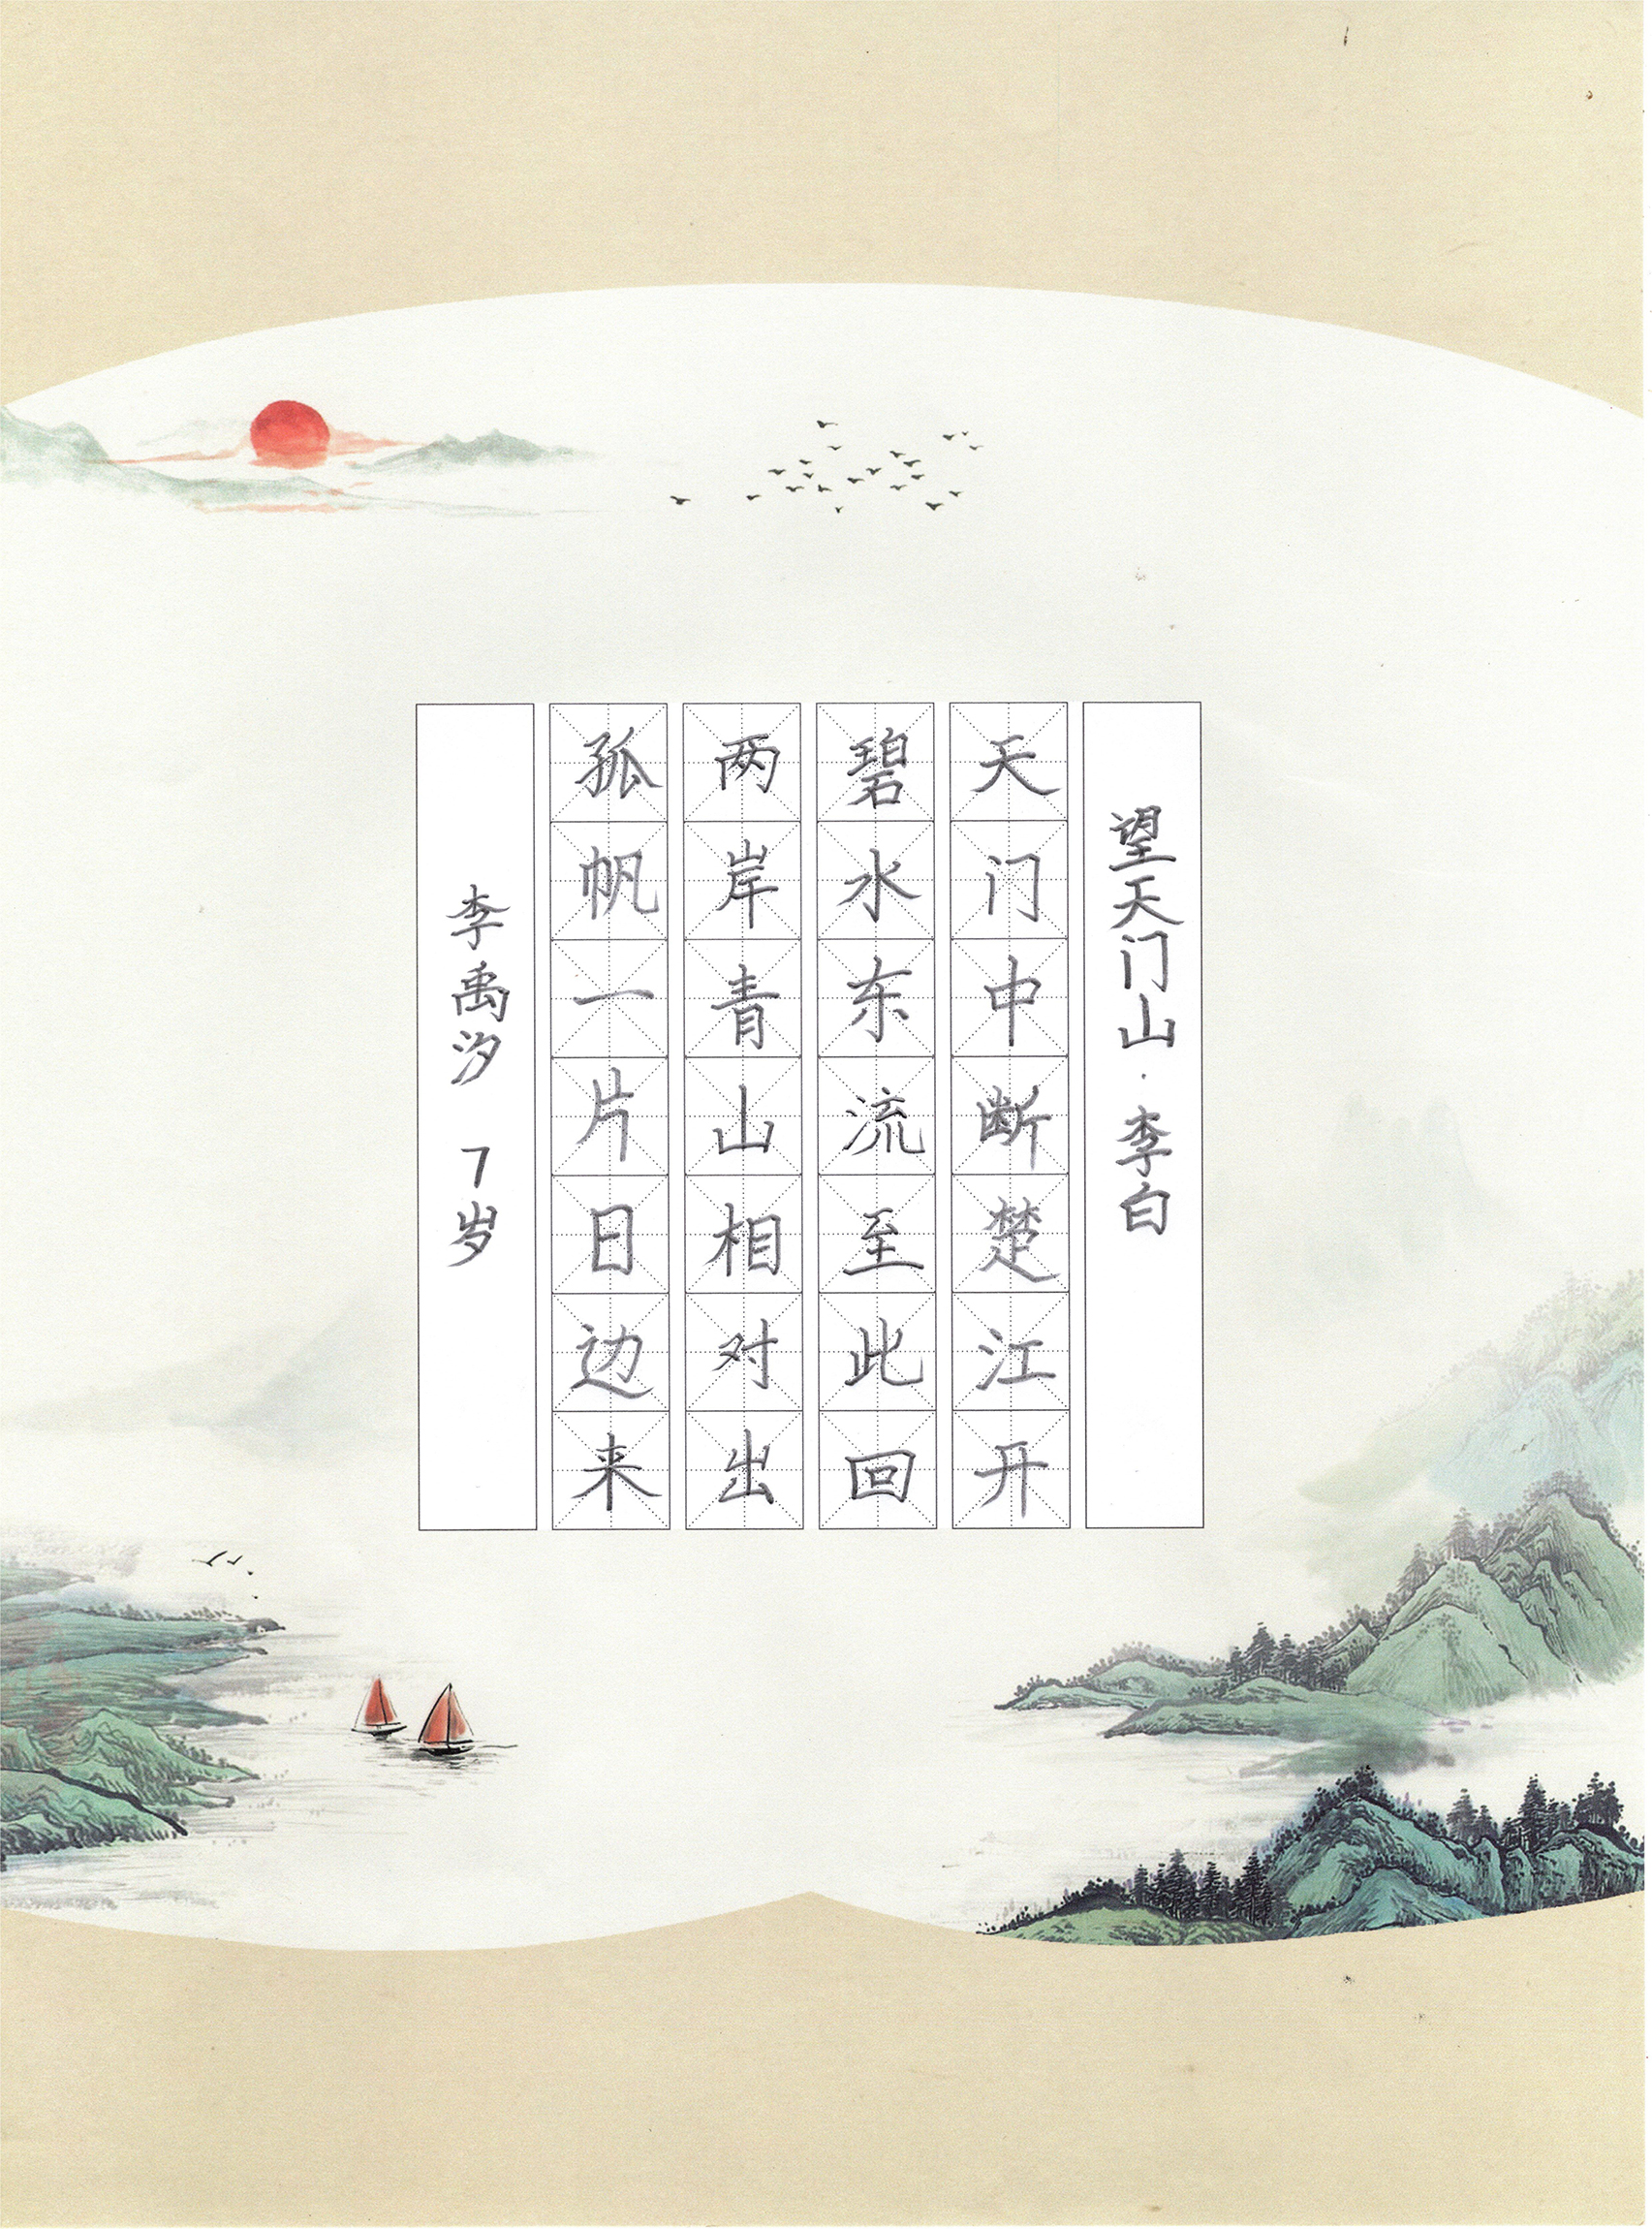 望天门山·李白
天门中断楚江开
碧水东流至此回
两岸青山相对出
孤帆一片日边来
李禹汐 7岁